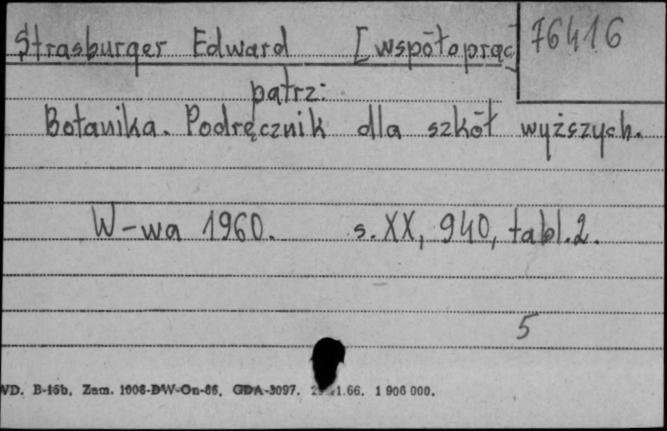 Strasburger Edward [współoprac
76416
patrz:
Botanika. Podręcznik dla szkół wyższych.
W-wa 1960. s. XX, 940, tabl. 2.
5
WD. B-16b, Zam. 1006-DW-On-66, GDA-3097. 1.66. 1 906 000.